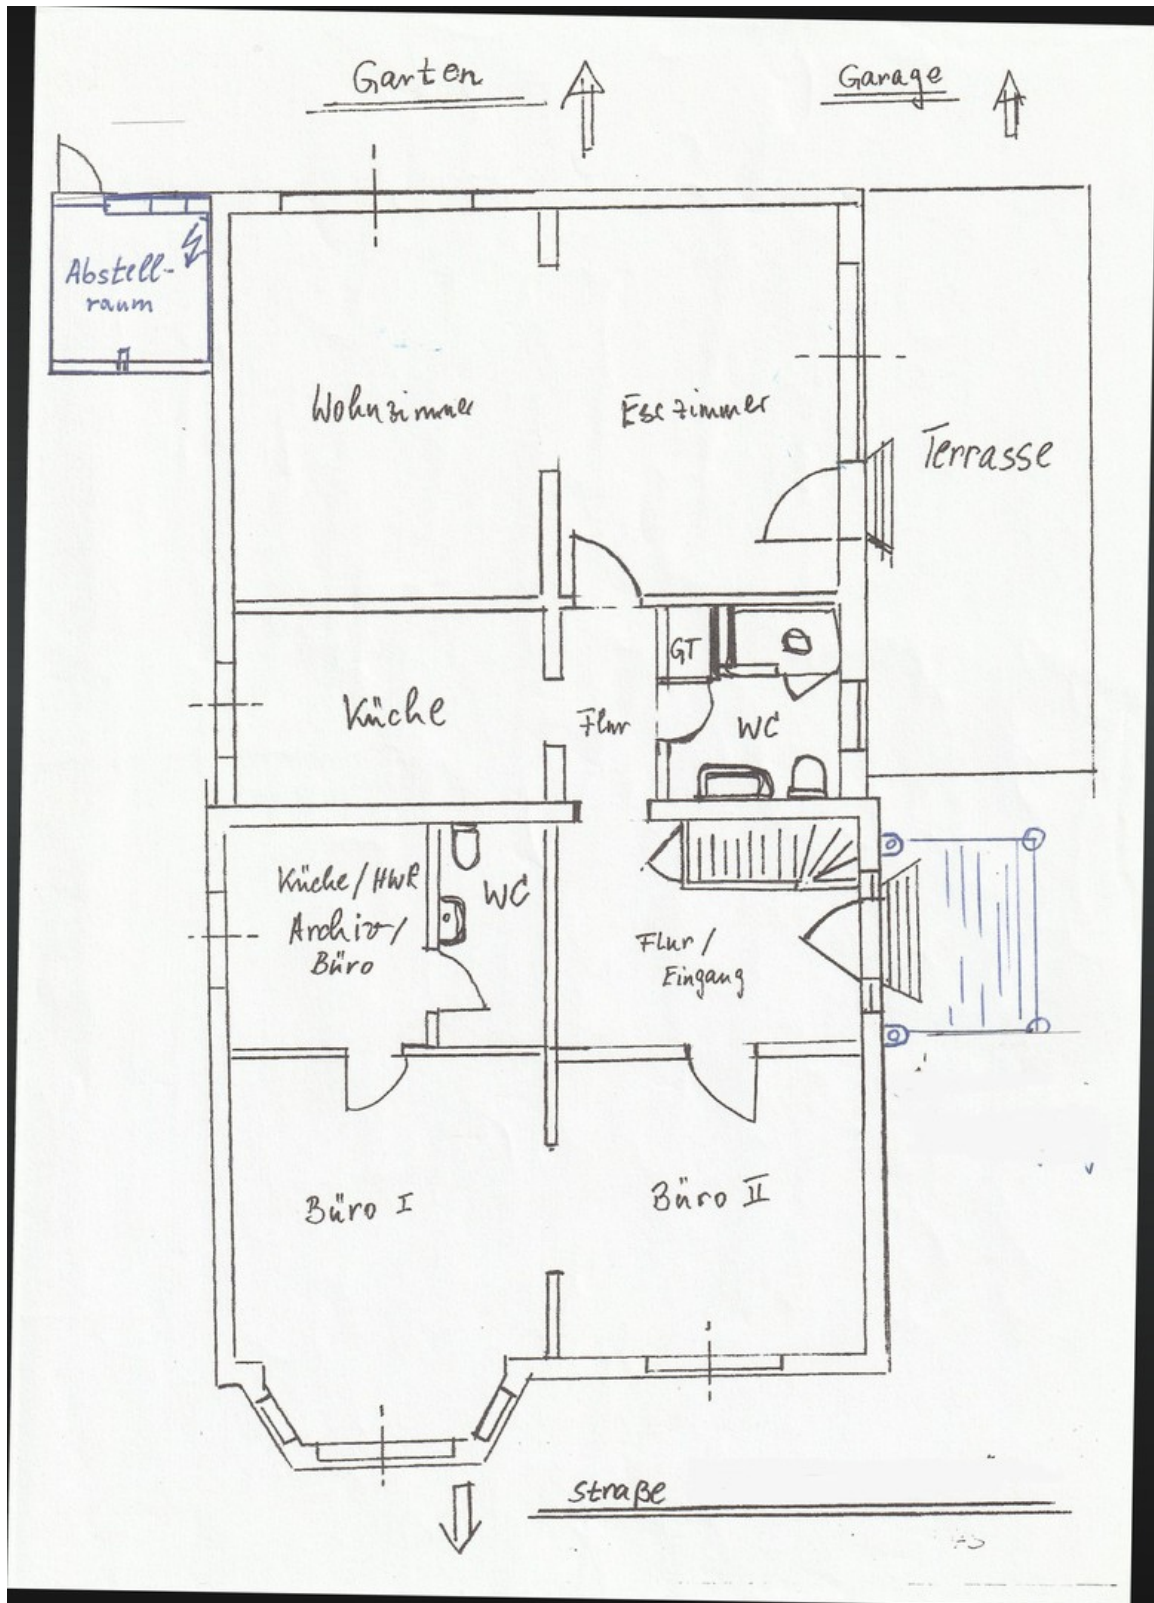 Garten
Garage
Abstell-
raum
Wohnzimmer
Esszimmer
Terrasse
GT
Küche
Flur
WC
Küche/HWR
Archiv/
Büro
WC
Flur/
Eingang
Büro I
Büro II
Straße